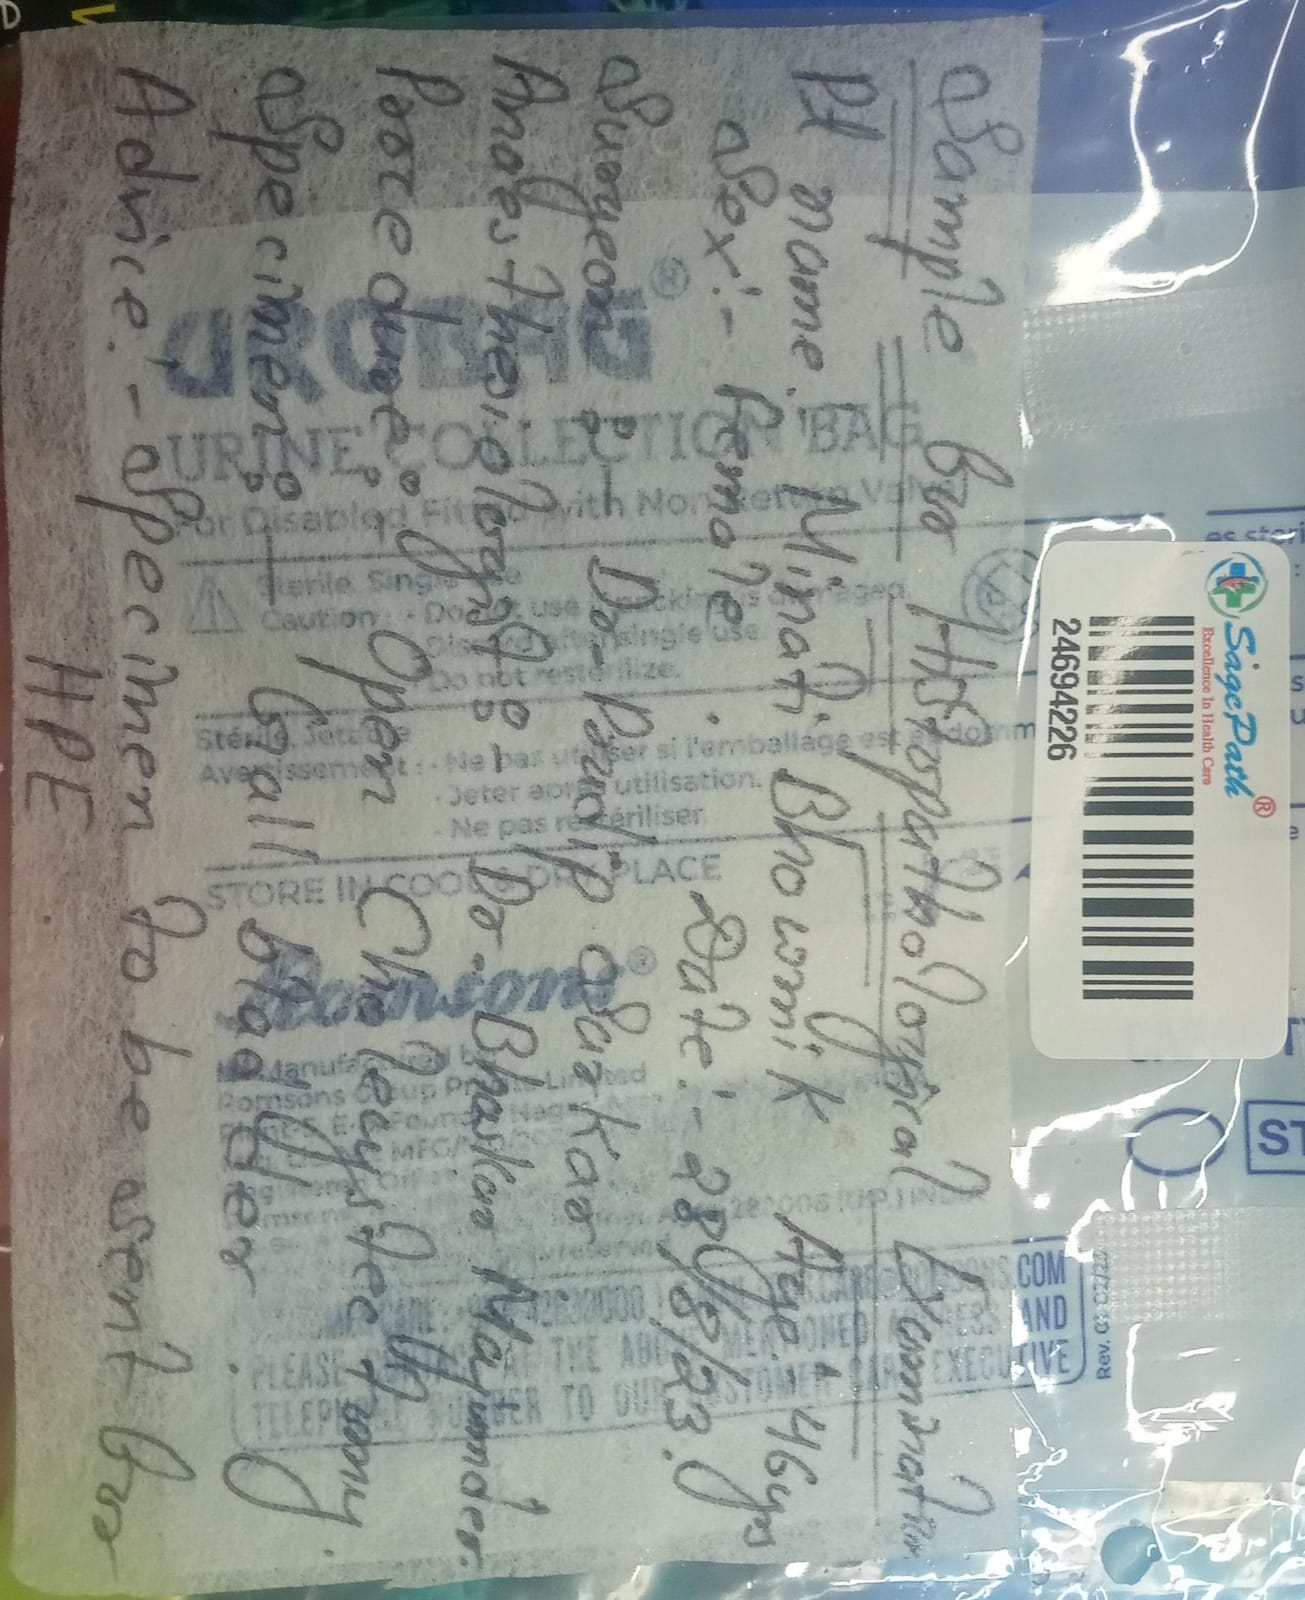 Sample for Histopathological Examination
Pt name. Minati Bhowmik Age:- 46yrs
Sex:- Female. Date:- 28/8/23.
Surgeon:- Dr- Pradip Sarkar
Anaesthesiologist:- Dr. Bhaskar Majumder.
Procedure:- Open Cholecystectomy.
Specimen:- Gall bladder.
Advice:- Specimen to be sent for
HPE
SagePath®
Excellence In Health Care
24694226
UROBAG®
URINE COLLECTION BAG
For Disabled Fitted with Non Return Valve
Sterile, Single use
Caution : - Do not use if packking is damaged.
- Discard after single use.
- Do not resterilize.
Sterile, Jetable
Avertissement : - Ne pas utiliser si l'emballage est endomm
- Jeter après utilisation.
- Ne pas restériliser.
STORE IN COOL DRY PLACE
Romsons®
Manufactured by
Romsons Group Private Limited
CUSTOMER CARE
PLEASE AT THE ABOVE MENTIONED ADDRESS AND
TELEPHONE NUMBER TO OUR CUSTOMER CARE EXECUTIVE
Rev.
ST